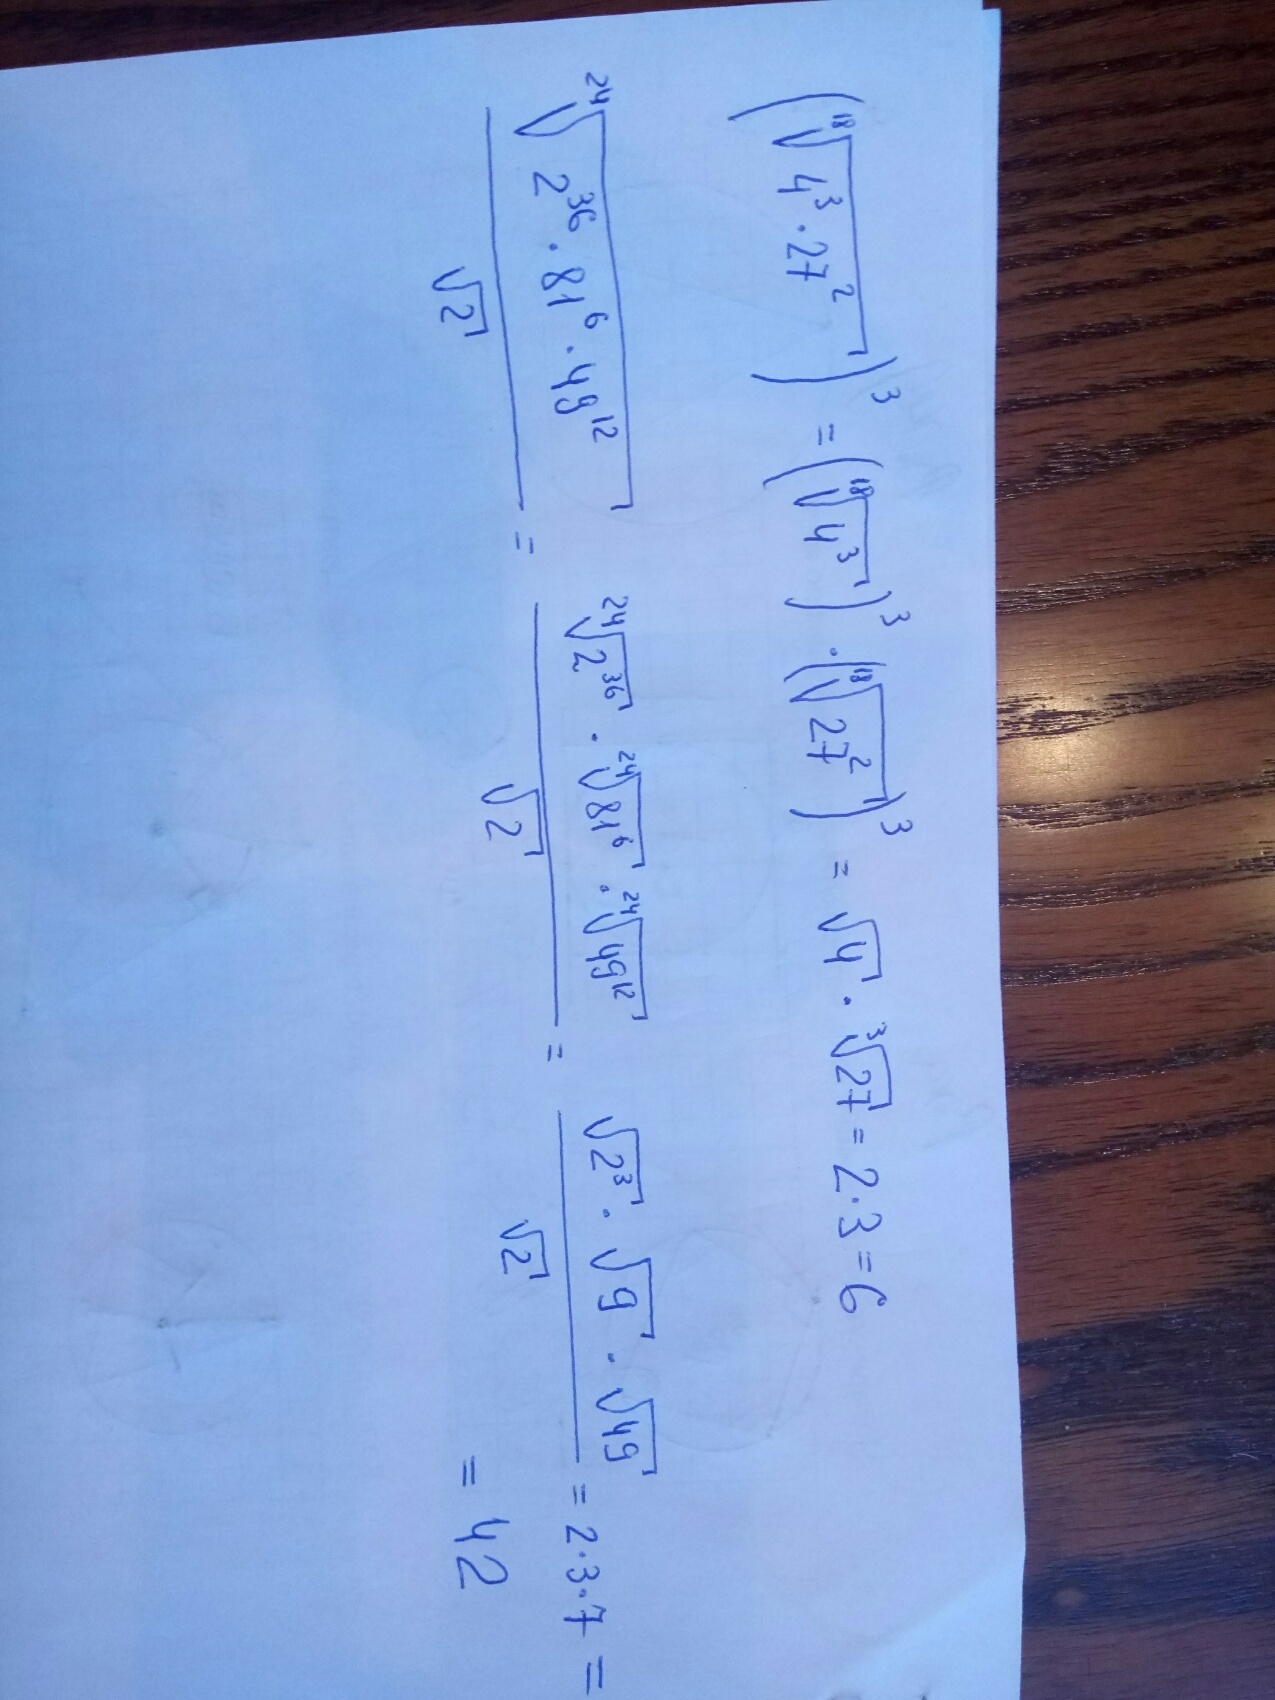 (¹⁸√(4³ · 27²))³ = (¹⁸√(4³))³ · (¹⁸√(27²))³ = √4 · ³√27 = 2 · 3 = 6
²⁴√(2³⁶ · 81⁶ · 49¹²) / √2 = ²⁴√(2³⁶) · ²⁴√(81⁶) · ²⁴√(49¹²) / √2 = √(2³) · √9 · √49 / √2 = 2 · 3 · 7 =
= 42